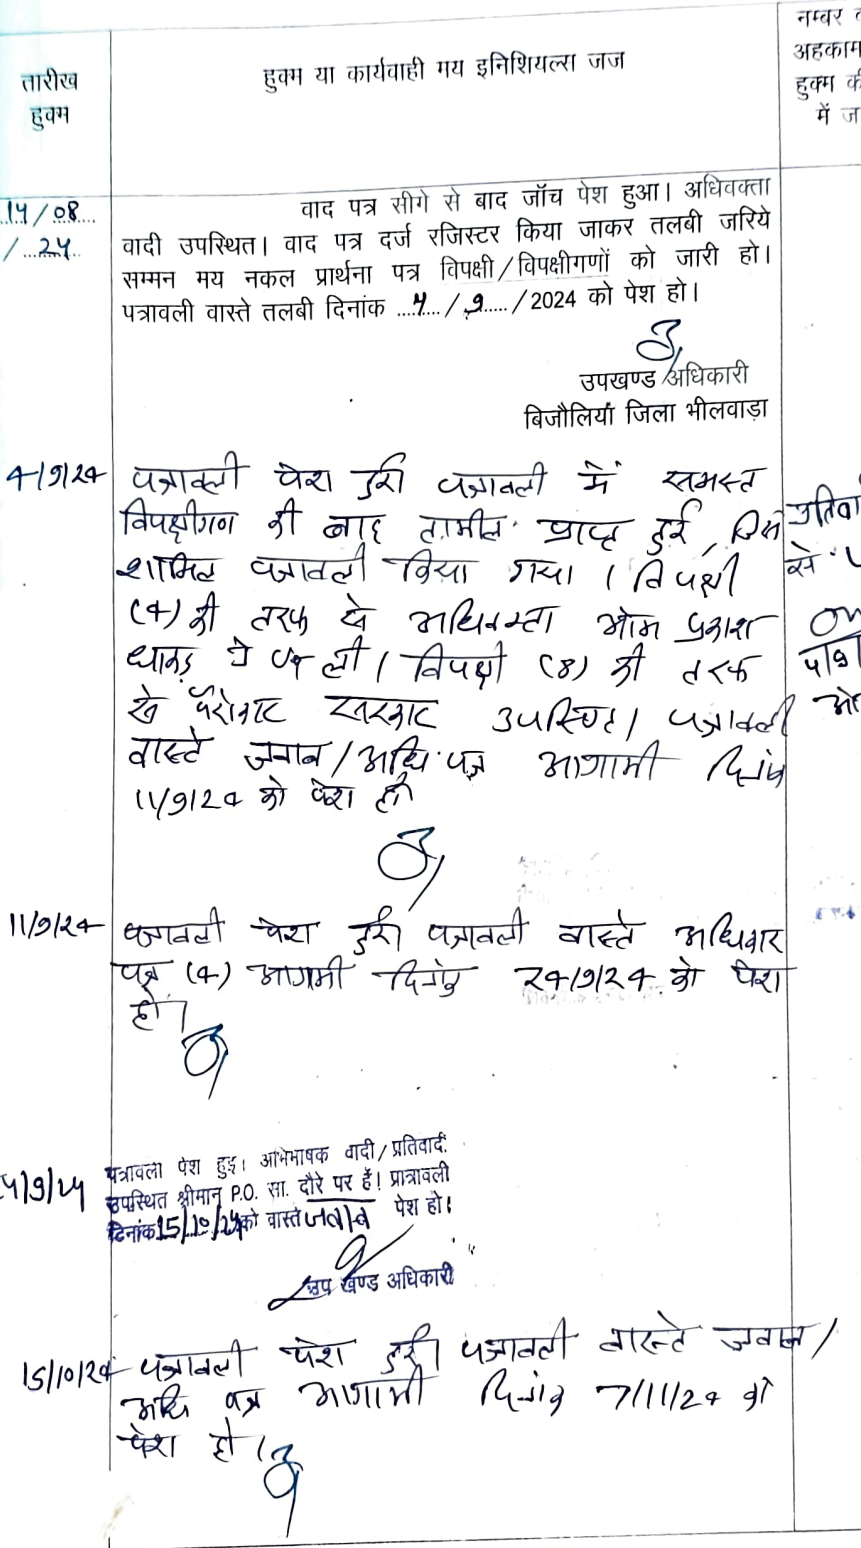 तारीख
हुक्म
हुक्म या कार्यवाही मय इनिशियल्स जज
नम्बर
अहकाम
हुक्म की
में ज
14/08
/24
वाद पत्र सीगे से बाद जॉच पेश हुआ। अधिवक्ता
वादी उपस्थित। वाद पत्र दर्ज रजिस्टर किया जाकर तलबी जरिये
सम्मन मय नकल प्रार्थना पत्र विपक्षी/विपक्षीगणों को जारी हो।
पत्रावली वास्ते तलबी दिनांक 4/9/2024 को पेश हो।
उपखण्ड अधिकारी
बिजौलियां जिला भीलवाड़ा
4/9/24
पत्रावली पेश हुई। पत्रावली में समस्त
विपक्षीगण की बाद तामील प्राप्त हुई, जिसे
शामिल पत्रावली किया गया। विपक्षी
(4) की तरफ से अधिवक्ता ओम प्रकाश
धाकड़ ने ली। विपक्षी (8) की तरफ
से पैरोकार सरकार उपस्थित। पत्रावली
वास्ते जवाब/अधि. पत्र आगामी दिनांक
11/9/24 को पेश हो
से
11/9/24
पत्रावली पेश हुई। पत्रावली वास्ते अधिकार
पत्र (4) आगामी दिनांक 24/9/24 को पेश
हो।
पत्रावली पेश हुई। अभिभाषक वादी/प्रतिवादी
उपस्थित श्रीमान् P.O. सा. दौरे पर हैं! प्रात्रावली
दिनांक 15/10/24 को वास्ते जवाब पेश हो।
उप खण्ड अधिकारी
15/10/24
पत्रावली पेश हुई। पत्रावली वास्ते जवाब/
अधि पत्र आगामी दिनांक 7/11/24 को
पेश हो।